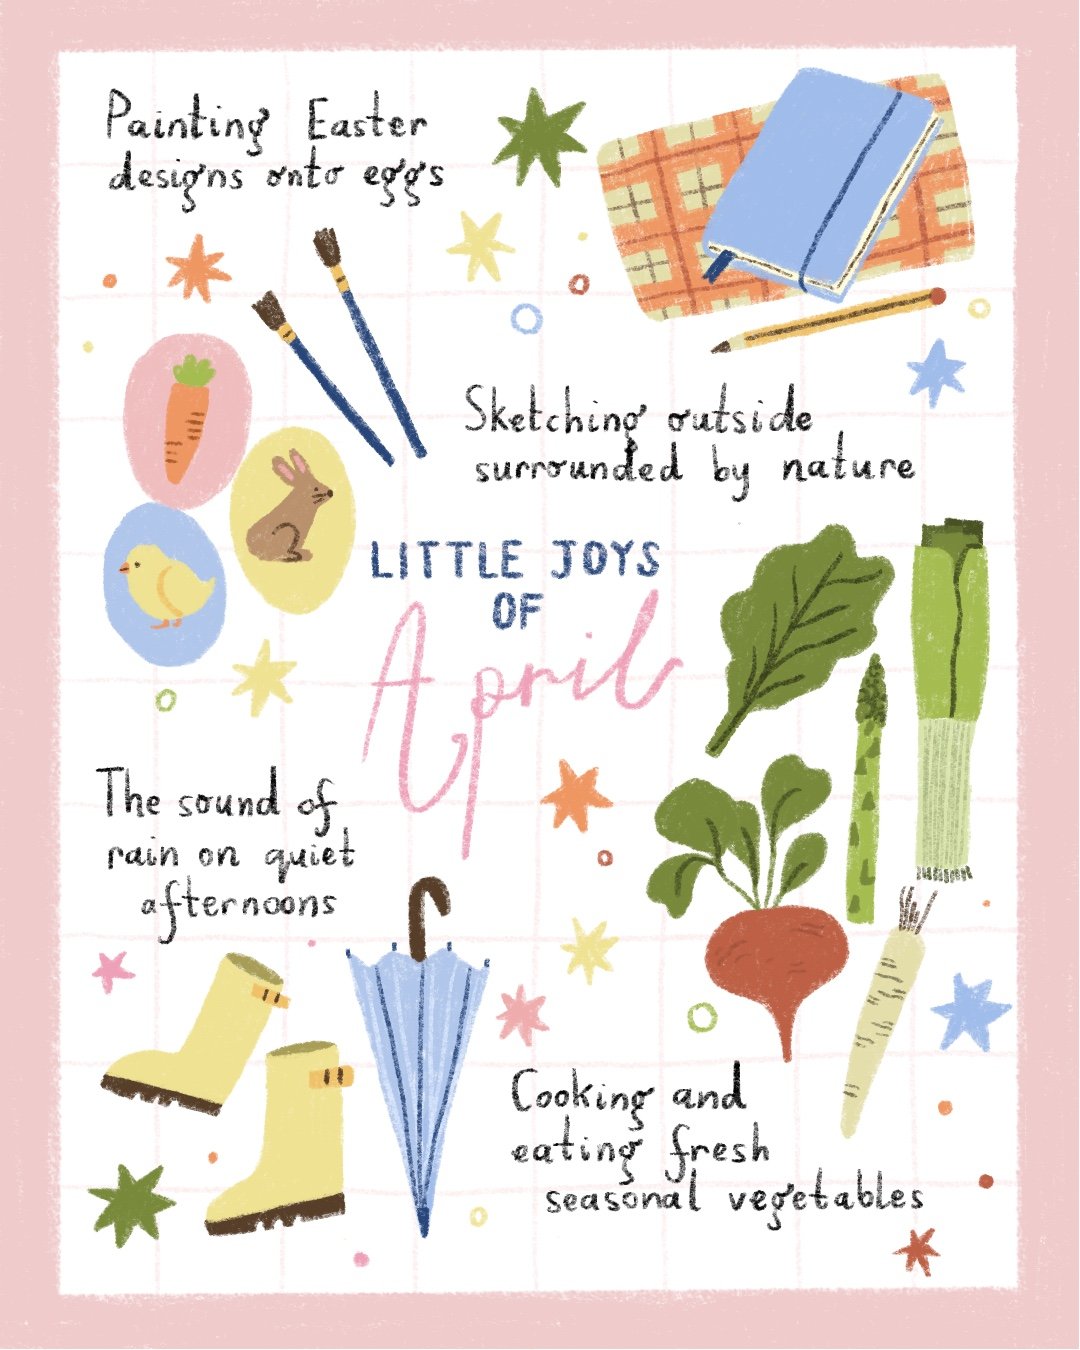 Painting Easter
designs onto eggs
Sketching outside
surrounded by nature
LITTLE JOYS
OF
April
The sound of
rain on quiet
afternoons
Cooking and
eating fresh
seasonal vegetables